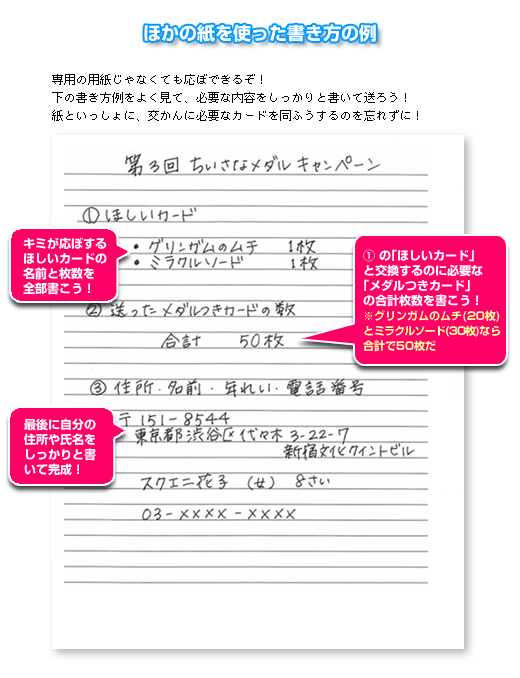 ほかの紙を使った書き方の例
専用の用紙じゃなくても応ぼできるぞ！
下の書き方例をよく見て、必要な内容をしっかりと書いて送ろう！
紙といっしょに、交かんに必要なカードを同ふうするのを忘れずに！
第3回 ちいさなメダル キャンペーン
① ほしいカード
• グリンガムのムチ 1枚
• ミラクルソード 1枚
キミが応ぼする
ほしいカードの
名前と枚数を
全部書こう！
① の「ほしいカード」
と交換するのに必要な
「メダルつきカード」
の合計枚数を書こう！
※グリンガムのムチ(20枚)
とミラクルソード(30枚)なら
合計で50枚だ
② 送ったメダルつきカードの数
合計 50枚
③ 住所・名前・年れい・電話番号
〒151-8544
東京都渋谷区代々木3-22-7
新宿文化クイントビル
スクエニ花子 (女) 8さい
03-××××-××××
最後に自分の
住所や氏名を
しっかりと書
いて完成！